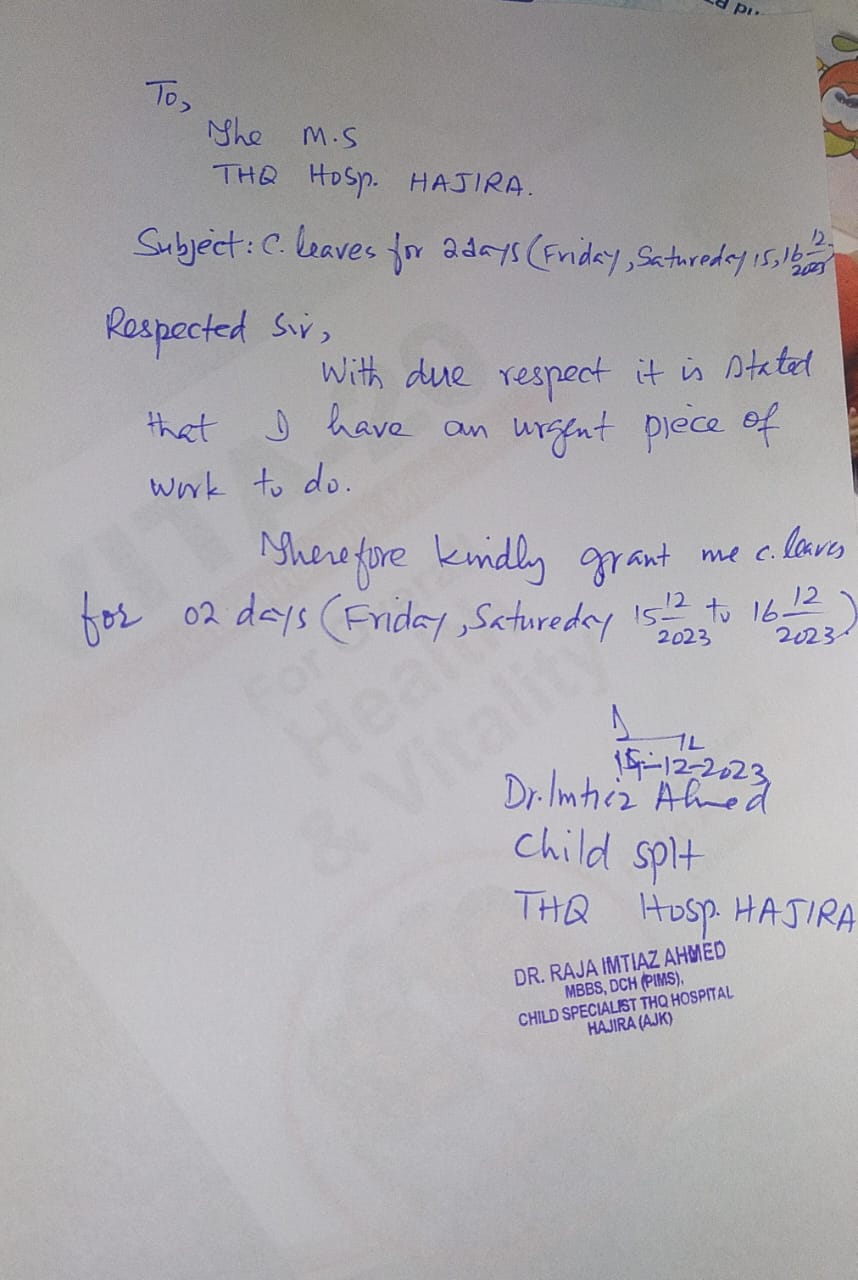 To,
The M.S
THQ Hosp. HAJIRA.
Subject: C. leaves for 2days (Friday, Satureday 15,16 12/2023)
Respected Sir,
With due respect it is stated
that I have an urgent piece of
work to do.
Therefore kindly grant me c. leaves
for 02 days (Friday, Satureday 15 12/2023 to 16 12/2023)
-12-2023
Dr. Imtiaz Ahmed
Child splt
THQ Hosp. HAJIRA
DR. RAJA IMTIAZ AHMED
MBBS, DCH (PIMS),
CHILD SPECIALIST THQ HOSPITAL
HAJIRA (AJK)
VITA-20
For Overall
Health
& Vitality